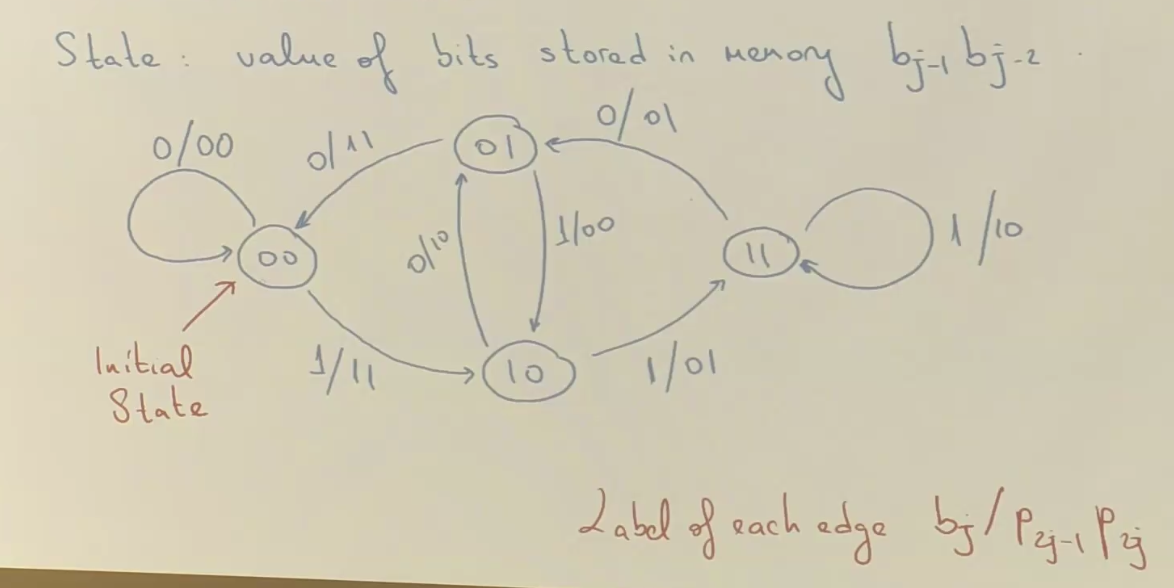 State: value of bits stored in memory bj-1 bj-2
0/00
0/11
01
0/01
00
0/10
1/00
11
1/10
Initial
State
1/11
10
1/01
Label of each edge bj/P2j-1 P2j